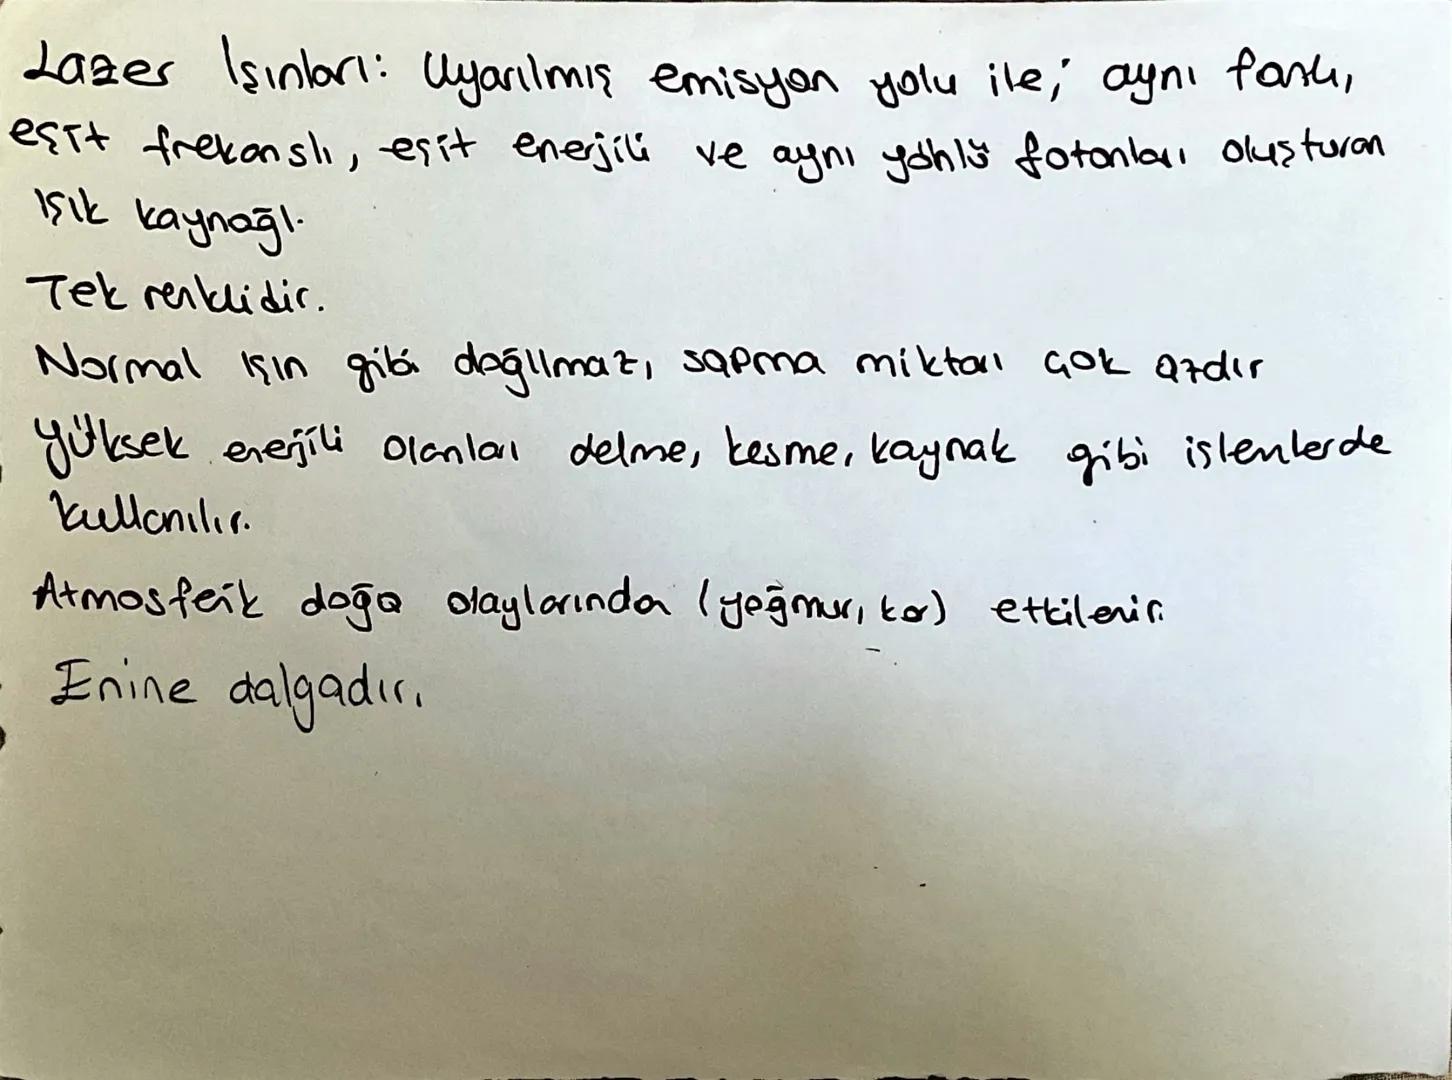 Lazer Işınları: Uyarılmış emisyon yolu ile; aynı fazlı,
eşit frekanslı, eşit enerjili ve aynı yönlü fotonları oluşturan
ışık kaynağı.
Tek renklidir.
Normal ışın gibi dağılmaz, sapma miktarı çok azdır
Yüksek enerjili olanları delme, kesme, kaynak gibi işlemlerde
kullanılır.
Atmosferik doğa olaylarından (yağmur, kar) etkilenir.
Enine dalgadır.